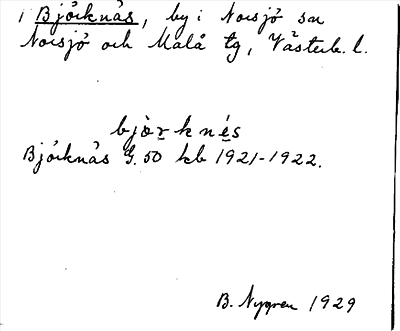 i Björknäs, by i Norsjö sn
Norsjö och Malå tg, Västerb. l.
björknés
Björknäs G. 50 kb 1921-1922.
B. Nygren 1929